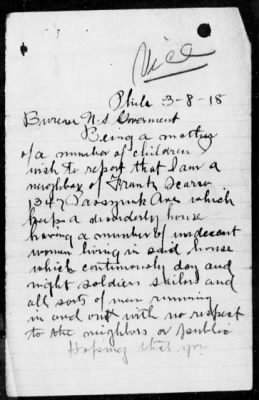 Vice
Phila 3-8-18
Bureau U.S Goverment
Being a mother
of a number of children
wish to report that I am a
neighbor of Frank
1347 Passyunk Ave which
keeps a disorderly house
having a number of indecent
women living in said house
which continously day and
night soldiers sailors and
all sorts of men running
in and out with no respect
to the neighbors or public
Hoping that you